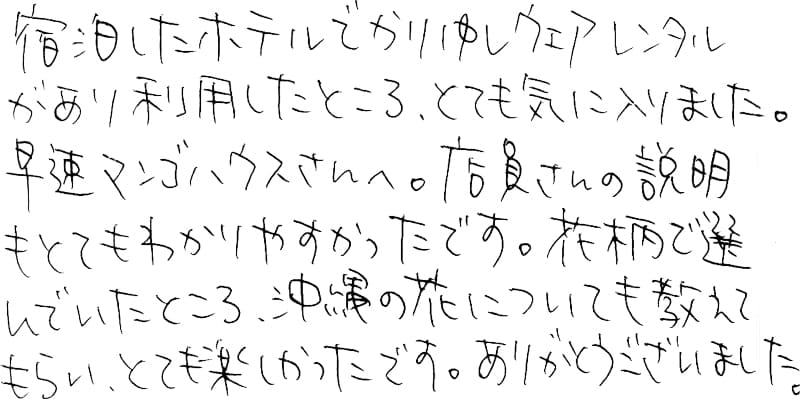 宿泊したホテルでかりゆしウェアレンタル
があり利用したところ、とても気に入りました。
早速マンゴハウスさんへ。店員さんの説明
もとてもわかりやすかったです。花柄で選
んでいたところ、沖縄の花についても教えて
もらい、とても楽しかったです。ありがとうございました。